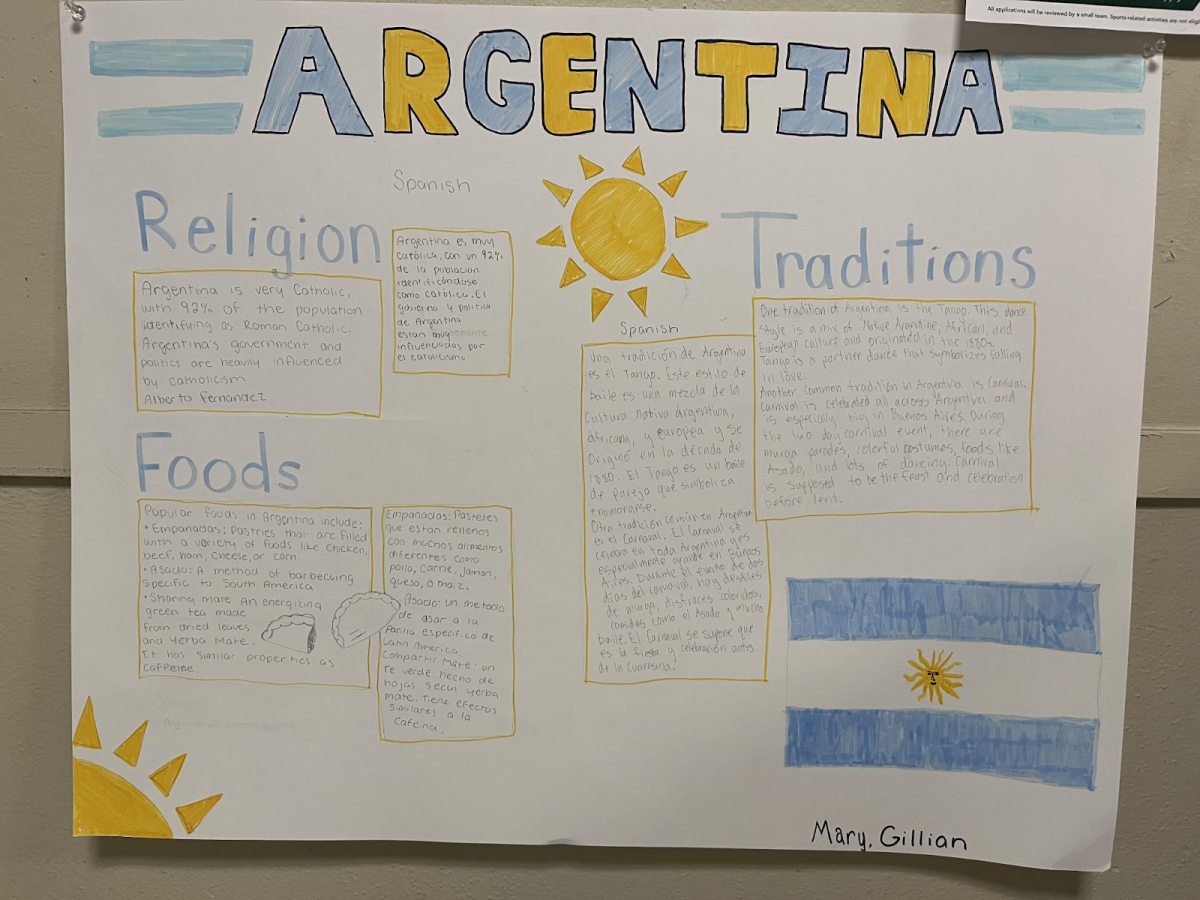 All applications will be reviewed by a small team. Sports-related activities are not
ARGENTINA
Religion
Argentina is very Catholic,
with 92% of the population
identifying as Roman Catholic.
Argentina's government and
politics are heavily influenced
by catholicism
Alberto Fernandez
Spanish
Argentina es muy
católica, con un 92%
de la poblacion
identificándose
como católica. El
gobierno y politica
de Argentina
estan muy
influenciadas por
el catolicismo
Foods
Popular foods in Argentina include:
• Empanadas: Pastries that are filled
with a variety of foods like chicken,
beef, ham, cheese, or corn
• Asado: A method of barbecuing
specific to South America
• Sharing mate An energizing
green tea made
from dried leaves
and Yerba Mate.
It has similar properties as
caffeine.
Empanadas: Pasteres
que estan rellenos
con muchos alimentos
diferentes como
pollo, carne, jamon,
queso, o maiz.
Asado: un metodo
de asar a la
Parilla especifico de
Latin America.
Compartir Mate: un
Te verde hecho de
hojas secas yerba
mate. Tiene efectos
similares a la
cafeina.
Spanish
Una tradición de Argentina
es el Tango. Este estilo de
baile es una mezcla de la
cultura nativa argentina,
africana, y europea y se
originó en la década de
1880. El Tango es un baile
de pareja que simboliza
enamorarse.
Otra tradición común en Argentina
es el Carnaval. El Carnaval se
celebra en toda Argentina y es
especialmente grande en Buenos
Aires. Durante el evento de dos
días del carnaval, hay desfiles
de murga, disfraces coloridos,
comidas como el Asado y mucho
baile. El Carnaval se supone que
es la fiesta y celebración antes
de la Cuaresma.
Traditions
One tradition of Argentina is the Tango. This dance
style is a mix of Native Argentine, African, and
European culture and originated in the 1880s.
Tango is a partner dance that symbolizes falling
in love.
Another common tradition in Argentina is Carnival.
Carnival is celebrated all across Argentina and
is especially big in Buenos Aires. During
the two day carnival event, there are
murga parades, colorful costumes, foods like
Asado, and lots of dancing. Carnival
is supposed to be the feast and celebration
before lent.
Mary, Gillian